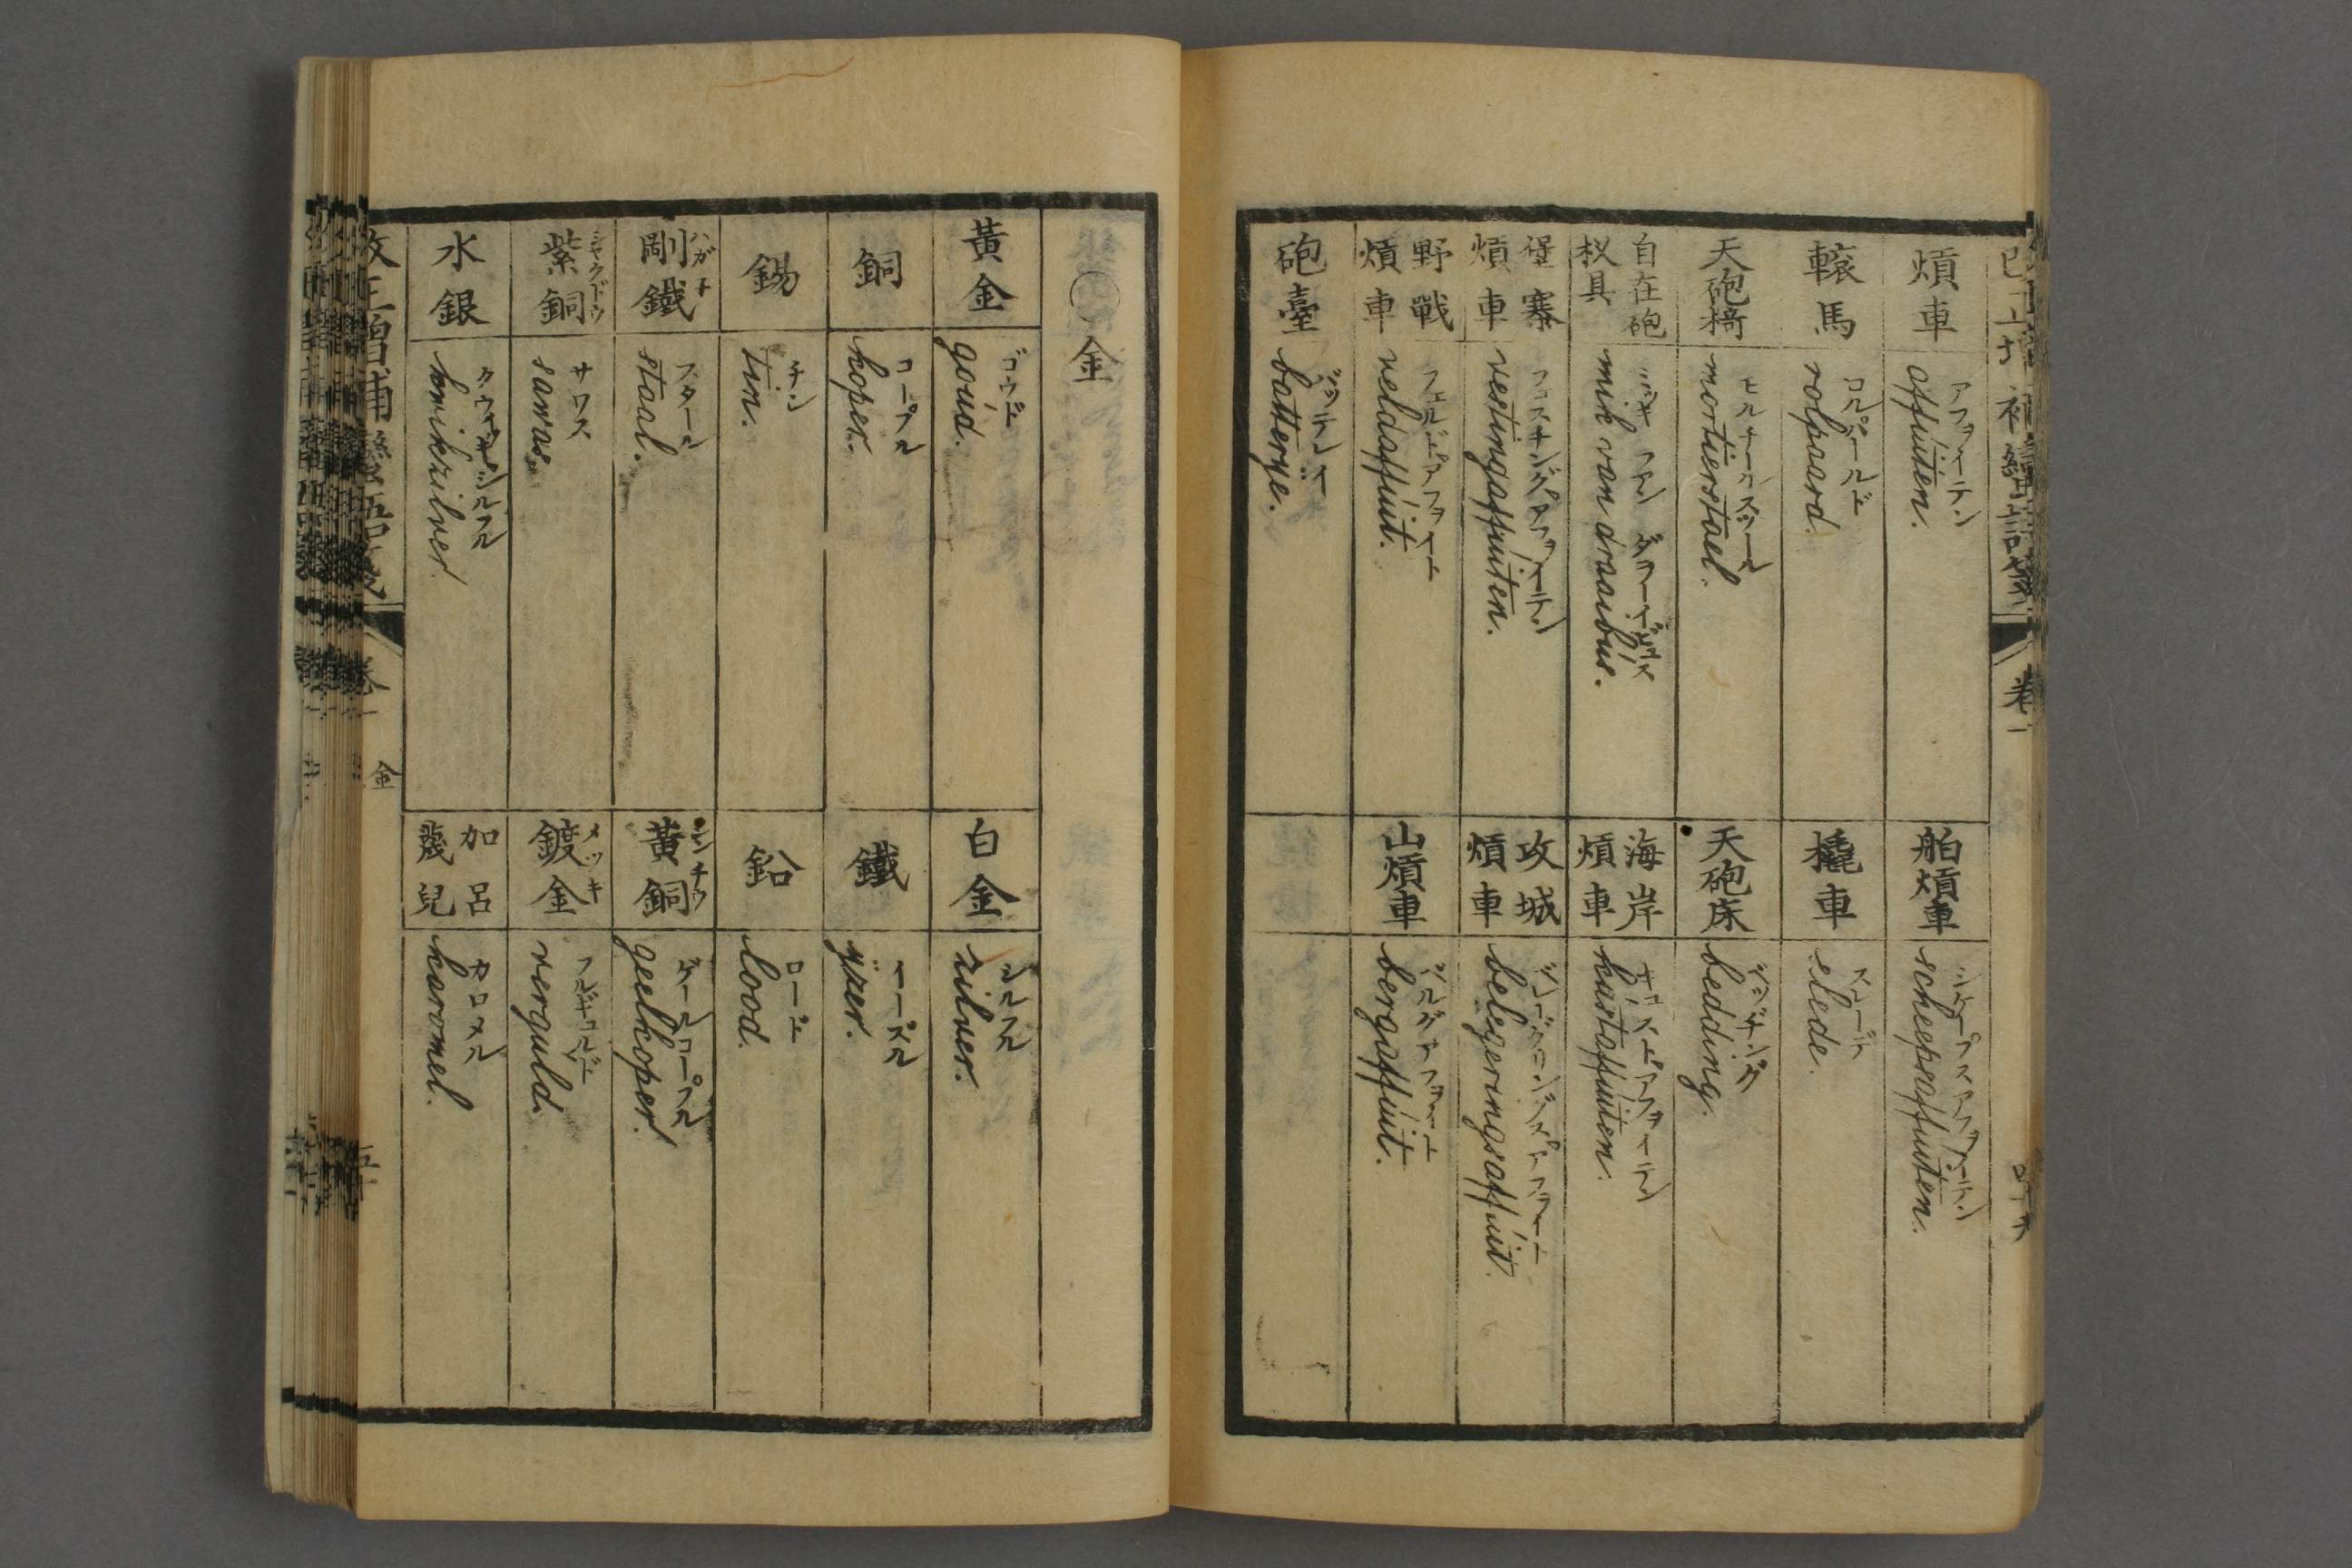 煩車
アフヲイテン
affuiten.
轅馬
ロルパールド
rolpaard.
天砲椅
モルチールスツール
mortierstoel.
自在砲
杈具
ミッキ ファン ダラーイビュス
mik van draaibus.
堡寨
煩車
vestingaffuiten.
野戰
煩車
フェルドアフヲイト
veldaffuit.
砲臺
バッテレイ
batterye.
舶煩車
scheepsaffuiten.
橇車
スレーデ
slede.
天砲床
ベッヂング
bedding.
海岸
煩車
キュストアフヲイテン
kustaffuiten.
攻城
煩車
belegeringsaffuit.
山煩車
ベルグアフヲイト
bergaffuit.
卷一
金
黃金
ゴウド
goud.
銅
コープル
koper.
錫
チン
tin.
剛鐵
ハガ子
スタール
staal.
紫銅
シャクドウ
サワス
sawas.
水銀
クウィキシルフル
kwikzilver.
白金
シルフル
zilver.
鐵
イーズル
yzer.
鉛
ロード
lood.
黃銅
シンチウ
ゲールコープル
geelkoper.
鍍金
メッキ
フルギュルド
verguld.
加呂
蔑兒
カロメル
karomel.
改正增補蠻語箋
卷一
金
五十